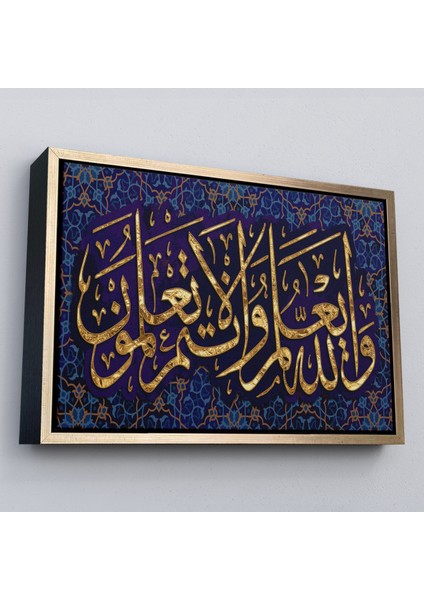 وَاللّٰهُ يَعْلَمُ وَاَنْتُمْ لَا تَعْلَمُونَ